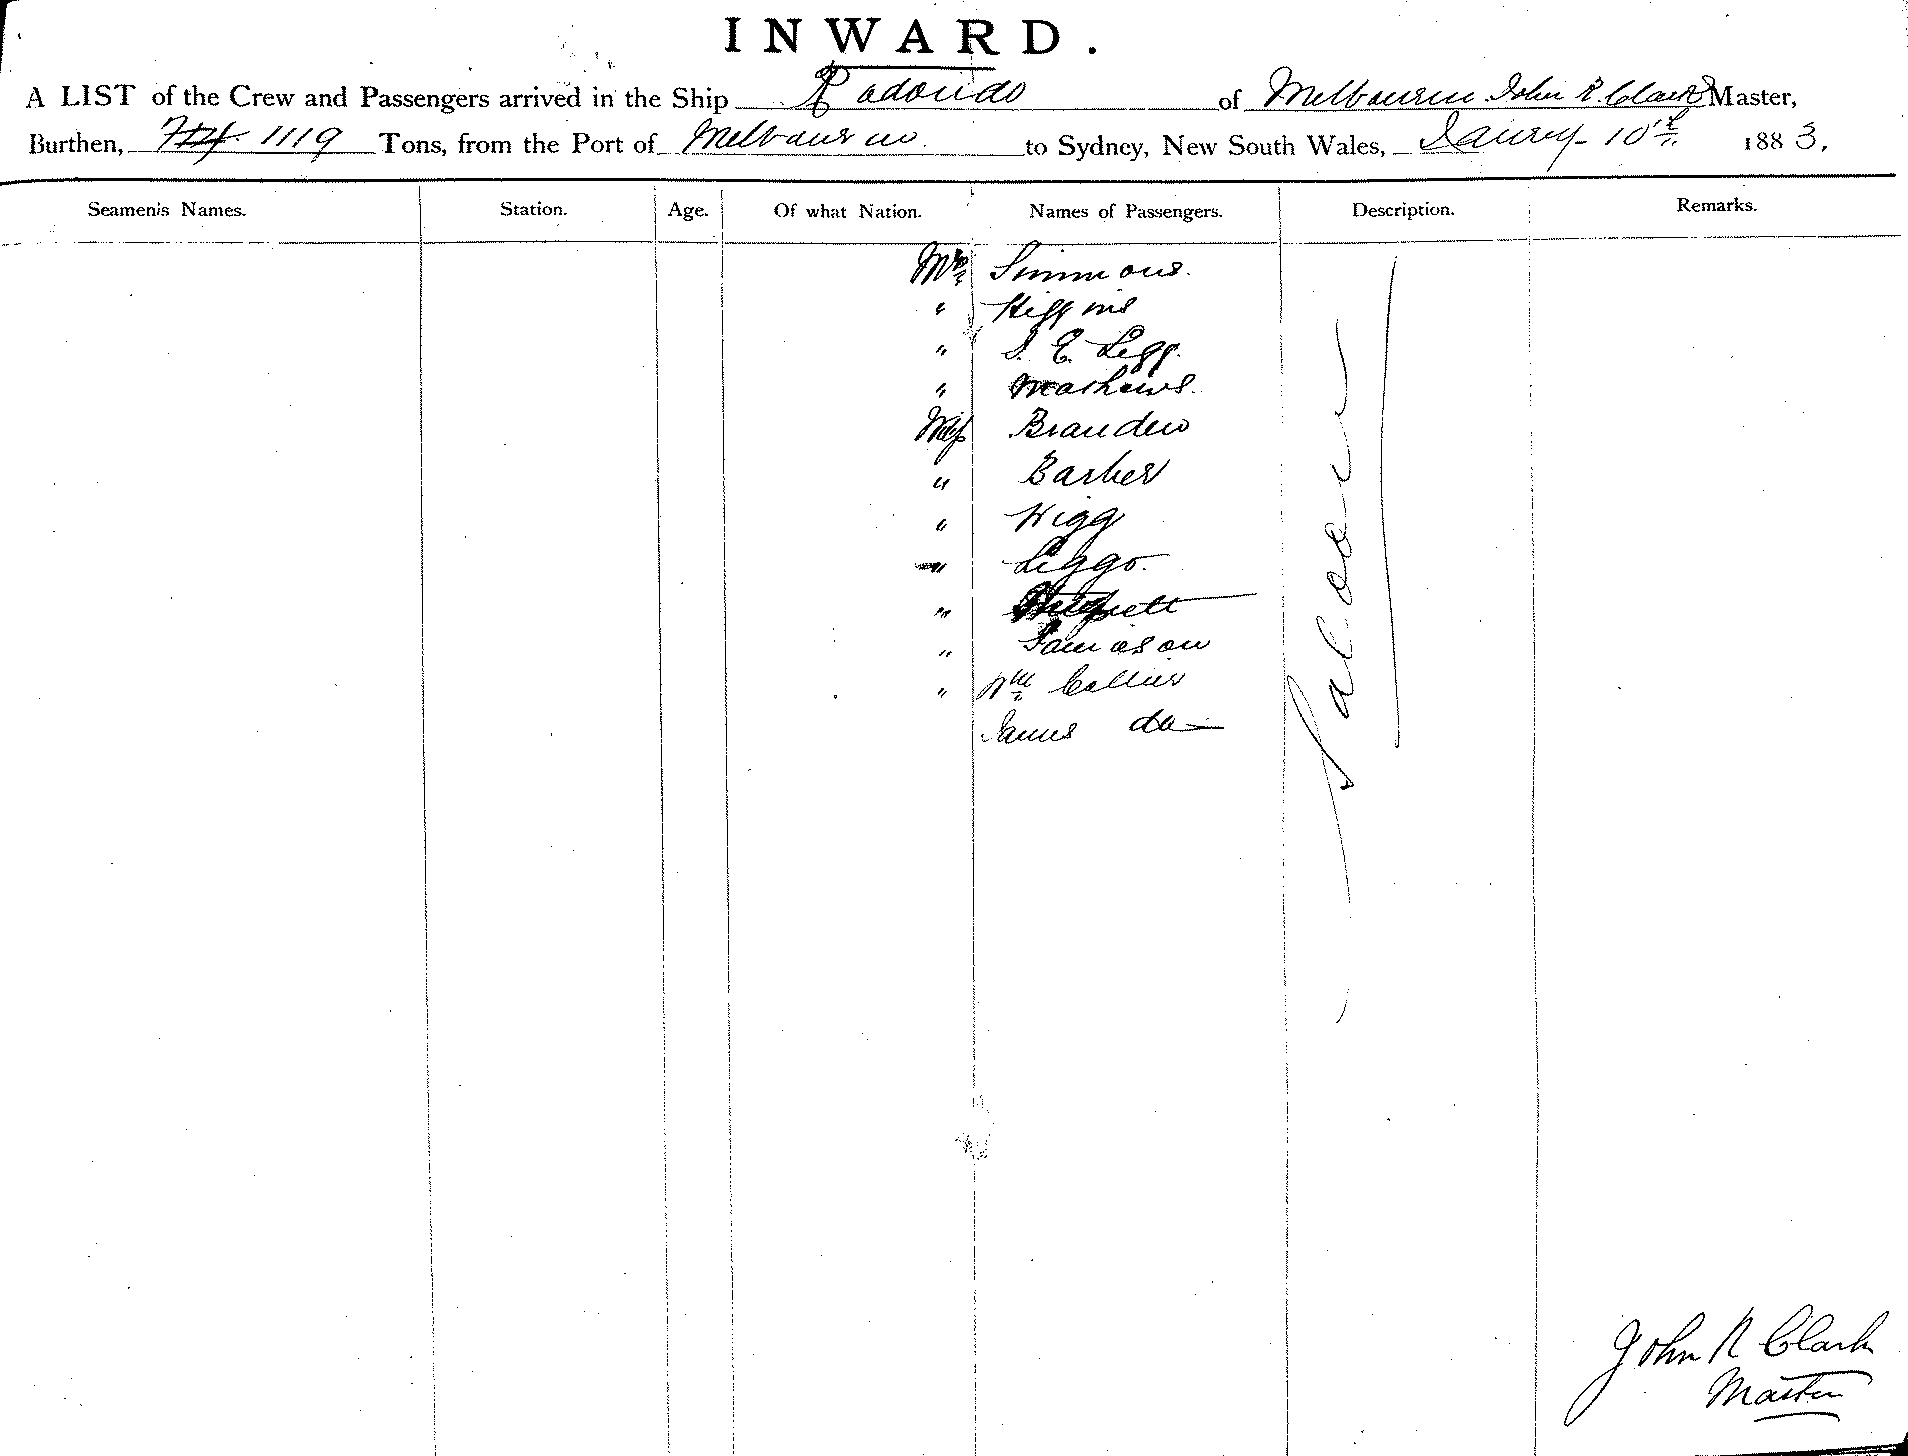 INWARD.
A LIST of the Crew and Passengers arrived in the Ship Rodondo of Melbourne John R. Clark Master,
Burthen, 714 1119 Tons, from the Port of Melbourne to Sydney, New South Wales, Janry 10th 1883.
Seamen's Names. Station. Age. Of what Nation. Names of Passengers. Description. Remarks.
Mrs Simmons.
" Higgins
" S. E. Legg.
" Mathews.
Miss Branden
" Barber
" Wigg
" Leggo.
"
" Jamason
" Wm Collier
James do
Saloon
John R Clark
Master